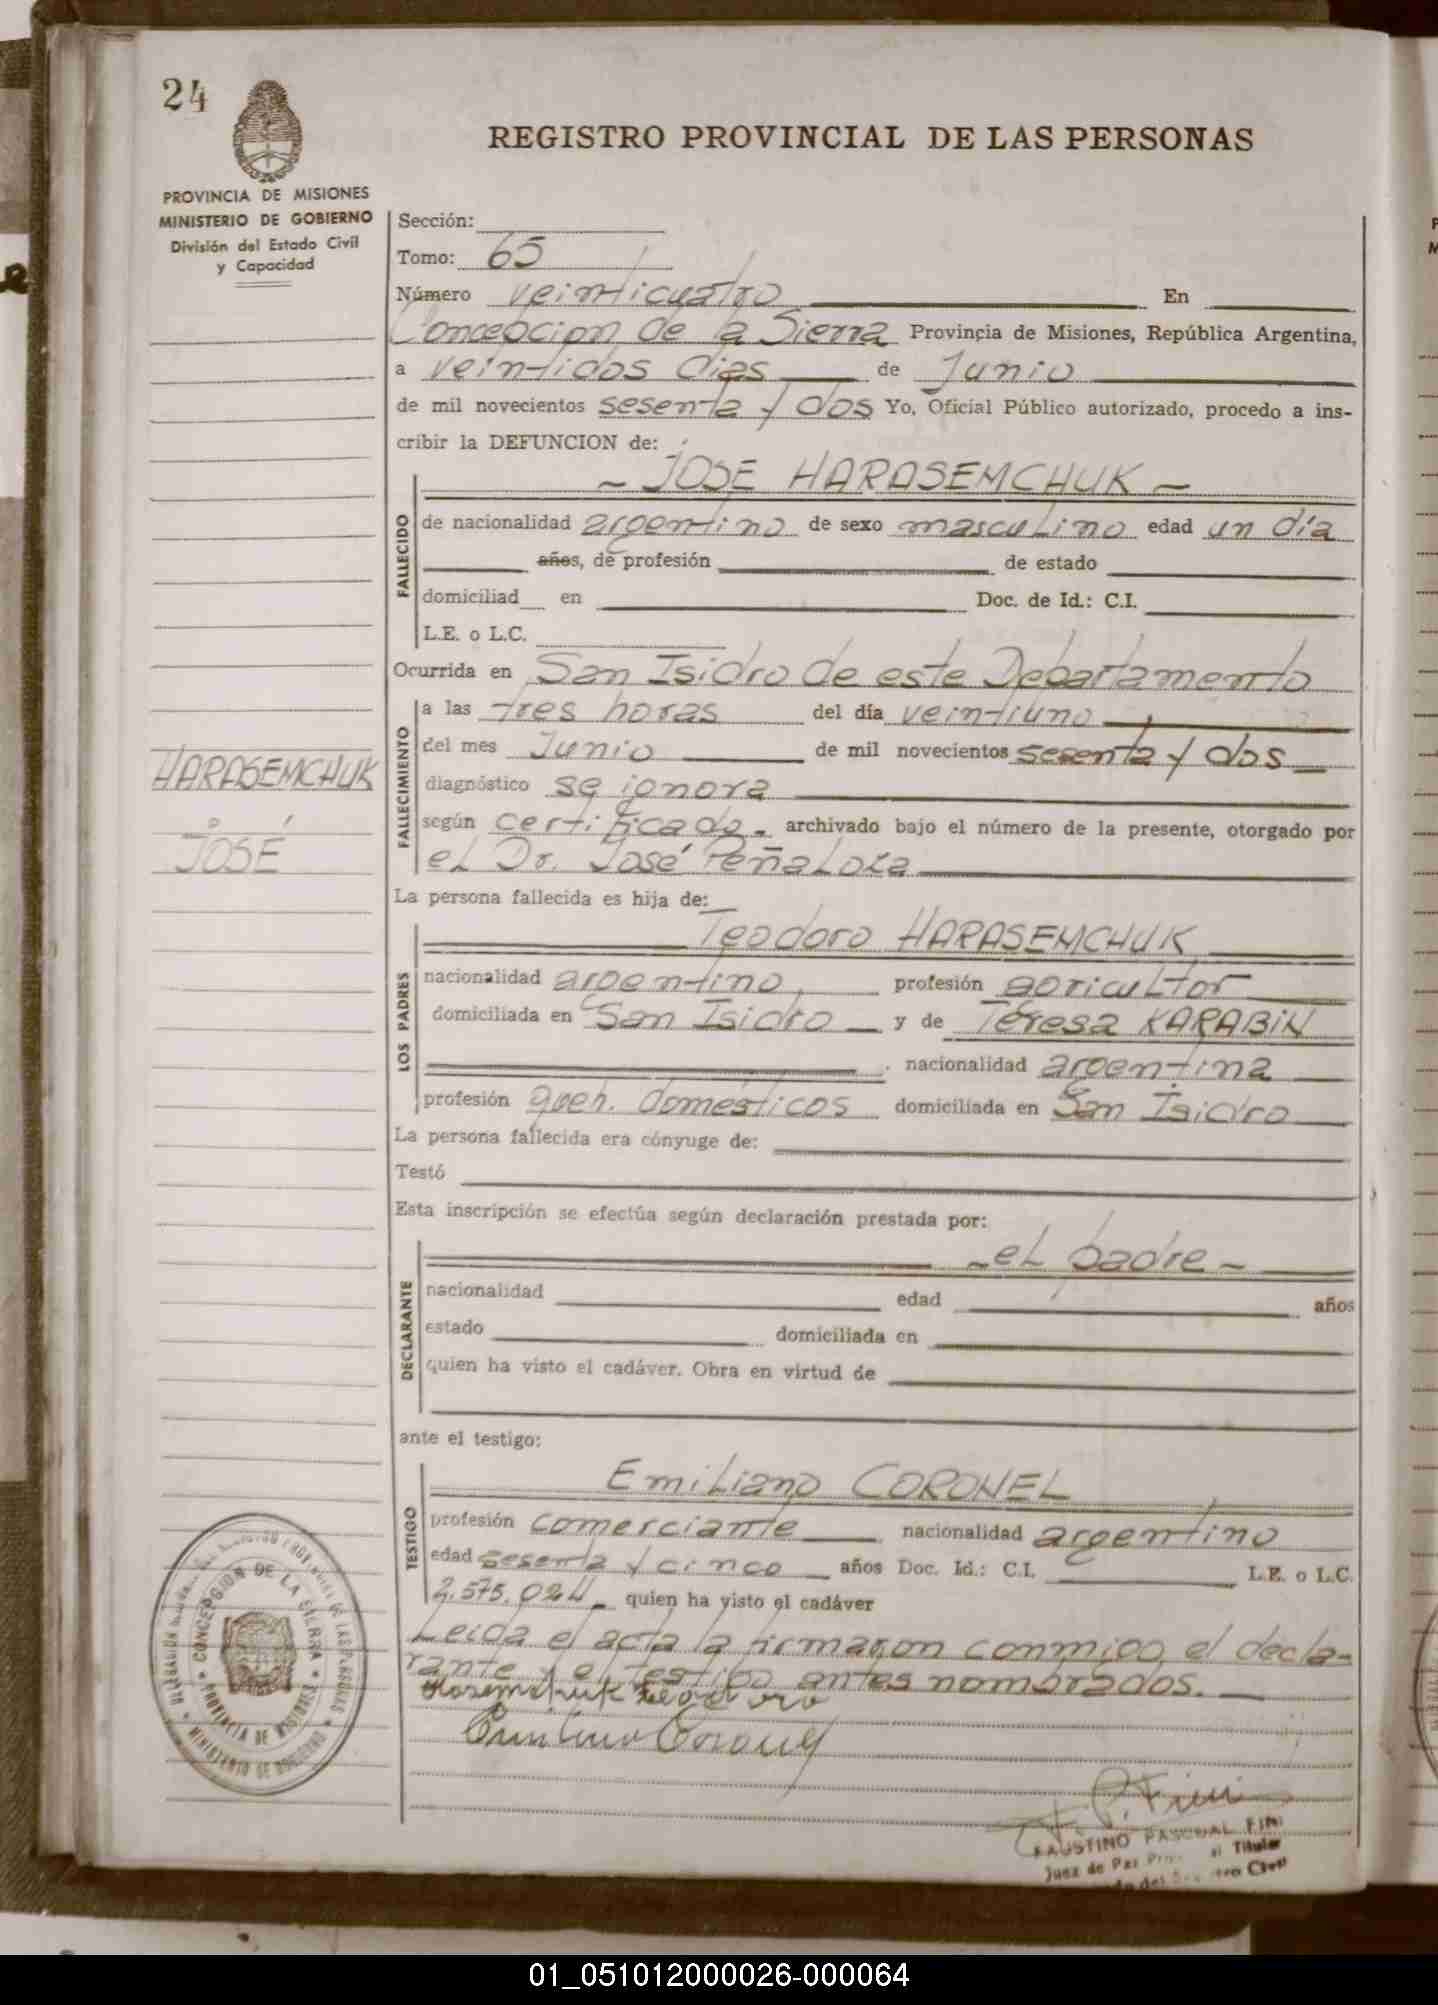 24
REGISTRO PROVINCIAL DE LAS PERSONAS
PROVINCIA DE MISIONES
MINISTERIO DE GOBIERNO
División del Estado Civil
y Capacidad
Sección:
Tomo: 65
Número veinticuatro En
Concepcion de la Sierra Provincia de Misiones, República Argentina,
a veintidos dias de Junio
de mil novecientos sesenta y dos Yo, Oficial Público autorizado, procedo a ins-
cribir la DEFUNCION de:
- JOSE HARASEMCHUK -
FALLECIDO
de nacionalidad argentino de sexo masculino edad un día
años, de profesión de estado
domiciliad en Doc. de Id.: C.I.
L.E. o L.C.
Ocurrida en San Isidro de este Departamento
FALLECIMIENTO
a las tres horas del día veintiuno
del mes Junio de mil novecientos sesenta y dos
diagnóstico se ignora
según certificado - archivado bajo el número de la presente, otorgado por
el Dr. José Peñaloza
HARASEMCHUK
JOSÉ
La persona fallecida es hija de:
LOS PADRES
Teodoro HARASEMCHUK
nacionalidad argentino, profesión agricultor
domiciliada en San Isidro y de Teresa KARABIN
. nacionalidad argentina
profesión queh. domésticos domiciliada en San Isidro
La persona fallecida era cónyuge de:
Testó
Esta inscripción se efectúa según declaración prestada por:
DECLARANTE
- el padre -
nacionalidad edad años
estado domiciliada en
quien ha visto el cadáver. Obra en virtud de
ante el testigo:
TESTIGO
Emiliano CORONEL
profesión comerciante nacionalidad argentino
edad sesenta y cinco años Doc. Id.: C.I. L.E. o L.C.
2.575.024 - quien ha visto el cadáver
Leida el acta la firmaron conmigo el decla-
rante y el testigo antes nombrados.
Harasemchuk Teodoro
Emiliano Coronel
CONCEPCION DE LA SIERRA
PROVINCIA DE MISIONES
MINISTERIO DE GOBIERNO
F. P. Fini
FAUSTINO PASCUAL FINI
Juez de Paz Titular
Civil
01_051012000026-000064